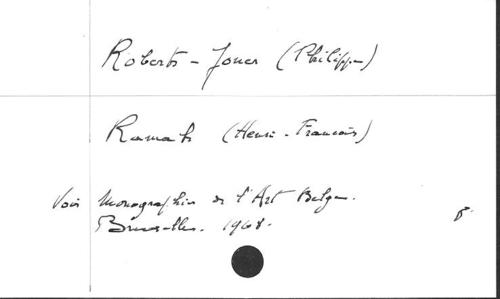 Roberts-Jones (Philippe)
Ramah (Henri-François)
Voir Monographie de l'Art Belge.
Bruxelles. 1968.